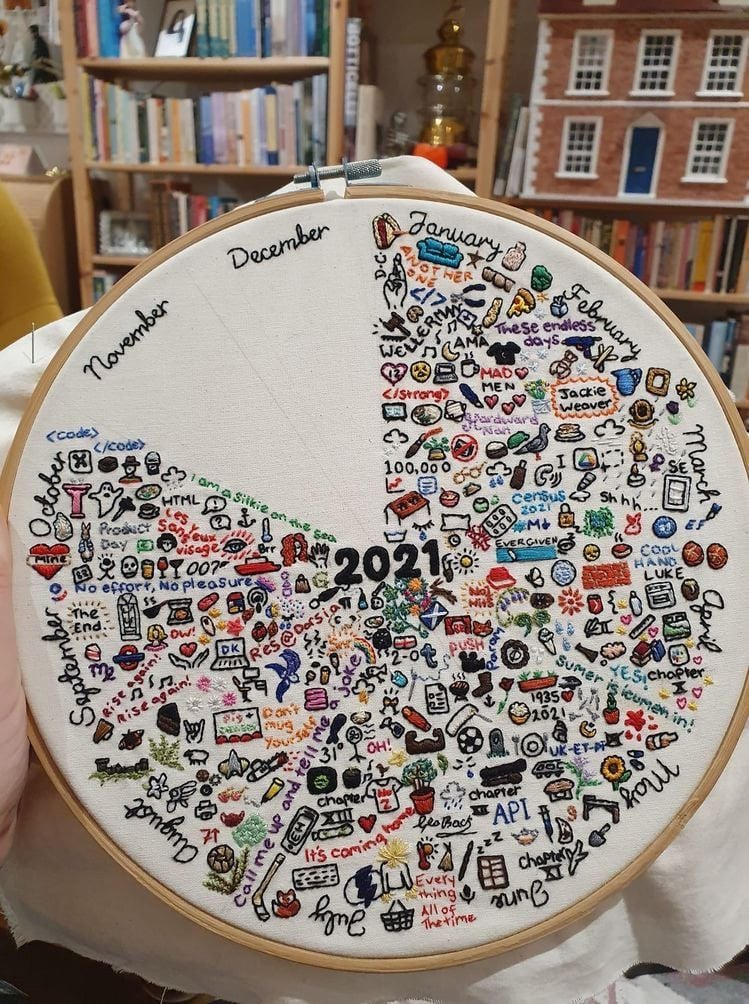 BOTTICELLI
December
January
November
February
ANOTHER
ONE
</>
WELLERMAN
AMA
These endless
days
12
MAD
MEN
Jackie
Weaver
</strong>
March
100,000
SE
<code>
</code>
October
I am a Silkie on the sea
HTML
Census
2021
#M
Shh...
Product
Day
Les
Sangeux
visage
Brr
EVERGIVEN
COOL
HAND
LUKE
MINE
007
2021
No effort, No pleasure
April
The
End
Ow!
DK
No!
PUSH
September
Me
Rise again!
Rise again!
2-0
YES!
chapter
Sumer is icumen in!
1935
2021
Don't
mug
yourself
31
OH!
UK-ET-PF
May
August
71
Call me up and tell me a joke
chapter
No
2
chapter
API
It's coming home
feedback
EH
zzz
chapter
July
Every
thing
All of
The time
June